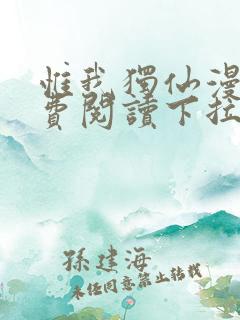 惟我獨仙漫
費閱讀下拉
孫建海
未經同意禁止轉載